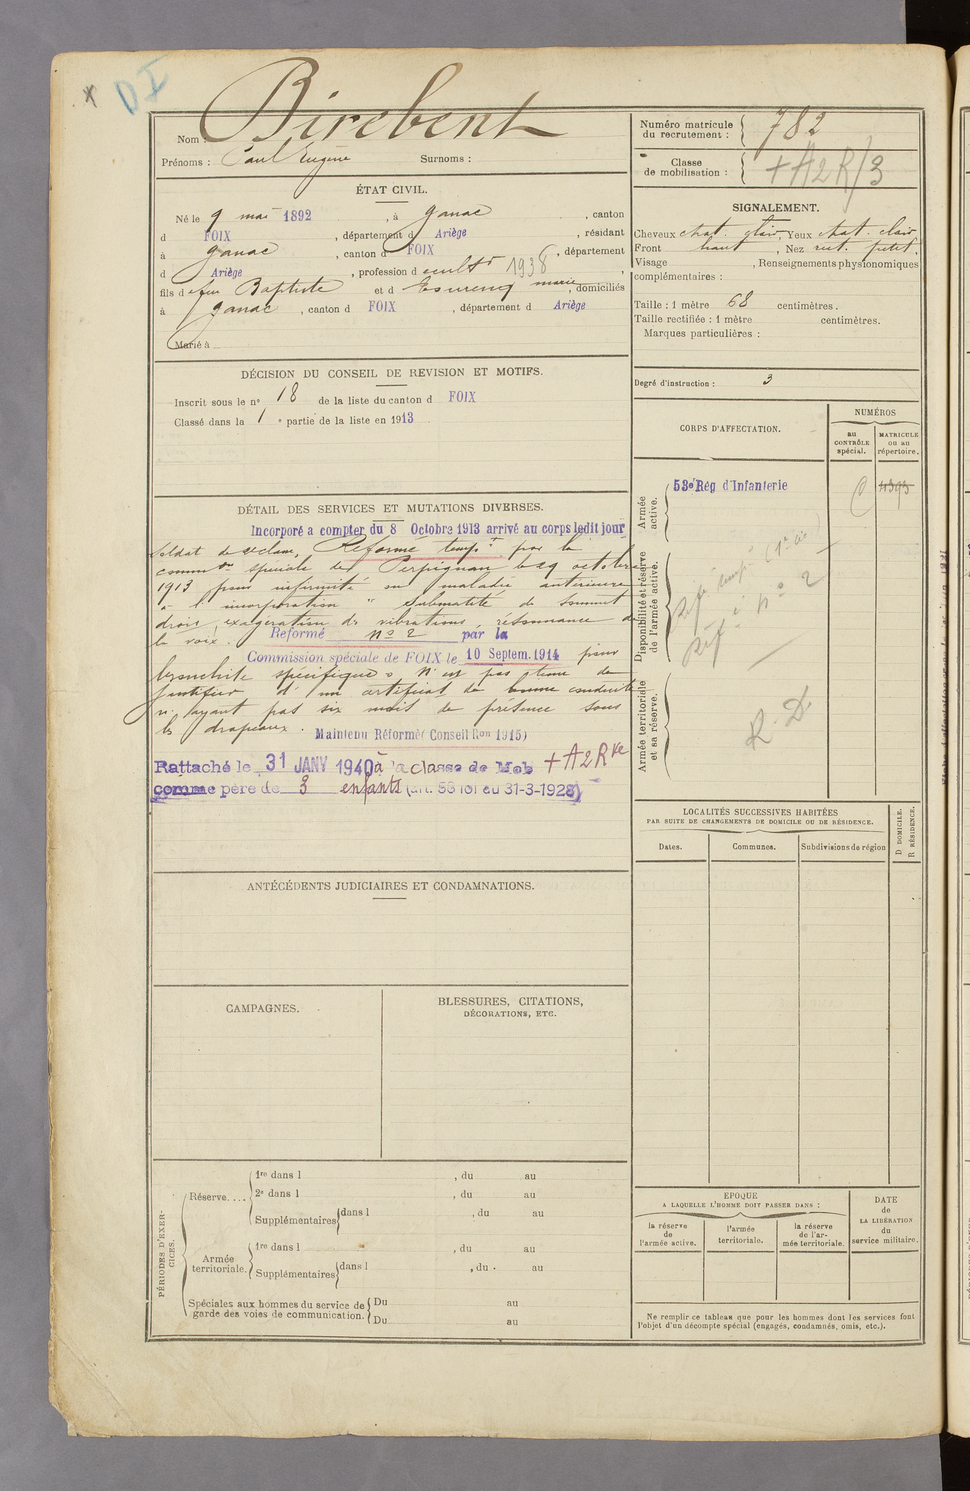 x D I
Nom : Birebent
Prénoms : Paul Eugène Surnoms :
ÉTAT CIVIL.
Né le 9 mai 1892, à ganac, canton
d FOIX, département d Ariège, résidant
à ganac, canton d FOIX, département
d Ariège, profession d cultr 1938,
fils d e feu Baptiste et d Esmeng marie, domiciliés
à ganac, canton d FOIX, département d Ariège
Marié à
DÉCISION DU CONSEIL DE REVISION ET MOTIFS.
Inscrit sous le no 18 de la liste du canton d FOIX
Classé dans la 1 e partie de la liste en 1913
DÉTAIL DES SERVICES ET MUTATIONS DIVERSES.
Incorporé a compter du 8 Octobre 1913 arrivé au corps ledit jour
Soldat de 2e classe, Réformé tempt par la
common spéciale de Perpignan le 29 octobre
1913 pour infirmité ou maladie antérieure
à l'incorporation " Submatité du sommet
droit, exagération des vibrations, résonnance de
la voix. Réformé no 2 par la
Commission spéciale de FOIX le 10 Septem. 1914 pour
bronchite spécifique. N'est pas tenu de
justifier d'un certificat de bonne conduite
n'ayant pas six mois de présence sous
les drapeaux. Maintenu Réformé (Conseil Ron 1915)
Rattaché le 31 JANV 1940 à la classe de Mob + A2Rve
comme père de 3 enfants (art. 58 loi du 31-3-1928)
ANTÉCÉDENTS JUDICIAIRES ET CONDAMNATIONS.
CAMPAGNES.
BLESSURES, CITATIONS,
DÉCORATIONS, ETC.
PÉRIODES D'EXERCICES.
Réserve....
1re dans l , du au
2e dans l , du au
Supplémentaires dans l , du au
Armée territoriale.
1re dans l , du au
Supplémentaires dans l , du au
Spéciales aux hommes du service de garde des voies de communication.
Du au
Du au
Numéro matricule du recrutement : 782
Classe de mobilisation : + A2R/3
SIGNALEMENT.
Cheveux chat. clair, Yeux chat. clair,
Front haut, Nez rect. petit,
Visage , Renseignements physionomiques
complémentaires :
Taille : 1 mètre 68 centimètres.
Taille rectifiée : 1 mètre centimètres.
Marques particulières :
Degré d'instruction : 3
CORPS D'AFFECTATION.
NUMÉROS
au CONTRÔLE spécial.
MATRICULE ou au répertoire.
Armée active.
53e Rég d'Infanterie
Disponibilité et réserve de l'armée active.
Réf. n° 2
Armée territoriale et sa réserve.
R. D.
LOCALITÉS SUCCESSIVES HABITÉES
PAR SUITE DE CHANGEMENTS DE DOMICILE OU DE RÉSIDENCE.
Dates.
Communes.
Subdivisions de région
D DOMICILE.
R RÉSIDENCE.
EPOQUE
A LAQUELLE L'HOMME DOIT PASSER DANS :
la réserve de l'armée active.
l'armée territoriale.
la réserve de l'armée territoriale.
DATE de LA LIBÉRATION du service militaire.
Ne remplir ce tableau que pour les hommes dont les services font
l'objet d'un décompte spécial (engagés, condamnés, omis, etc.).